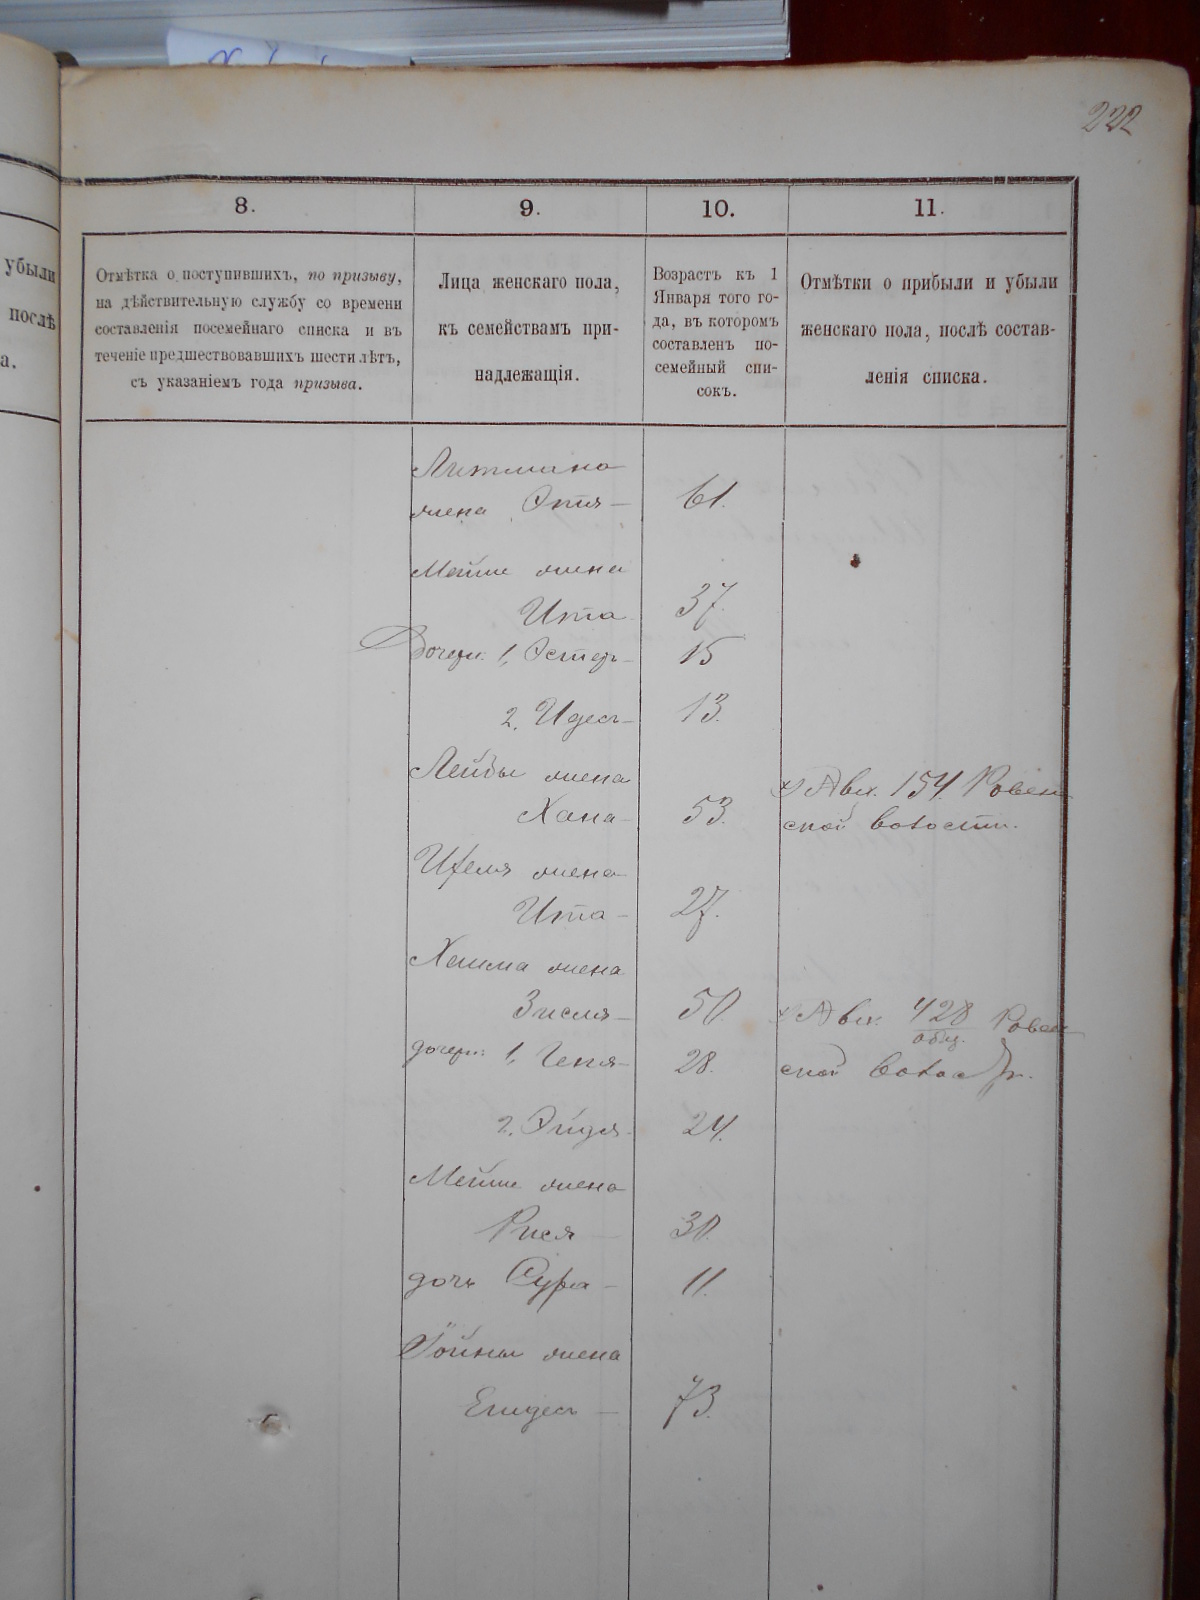 222
8.
9.
10.
11.
убыли
послѣ
а.
Отмѣтка о поступившихъ, по призыву,
на дѣйствительную службу со времени
составленія посемейнаго списка и въ
теченіе предшествовавшихъ шести лѣтъ,
съ указаніемъ года призыва.
Лица женскаго пола,
къ семействамъ при-
надлежащія.
Возрастъ къ 1
Января того го-
да, въ которомъ
составленъ по-
семейный спи-
сокъ.
Отмѣтки о прибыли и убыли
женскаго пола, послѣ состав-
ленія списка.
Литмана
жена Этля — 61.
Мейше жена
Ита 37.
Дочери: 1, Эстеръ — 15
2, Идесъ — 13.
Лейбы жена
Хана — 53.
154. Ровен
ской волости.
Ицеля жена
Ита — 27.
Хаима жена
Зисля — 50.
428 Ровен
общ.
дочери: 1, Геня — 28.
ской
2, Эйдя 24.
Мейше жена
Рися — 30.
дочь Сура — 11.
жена
73.